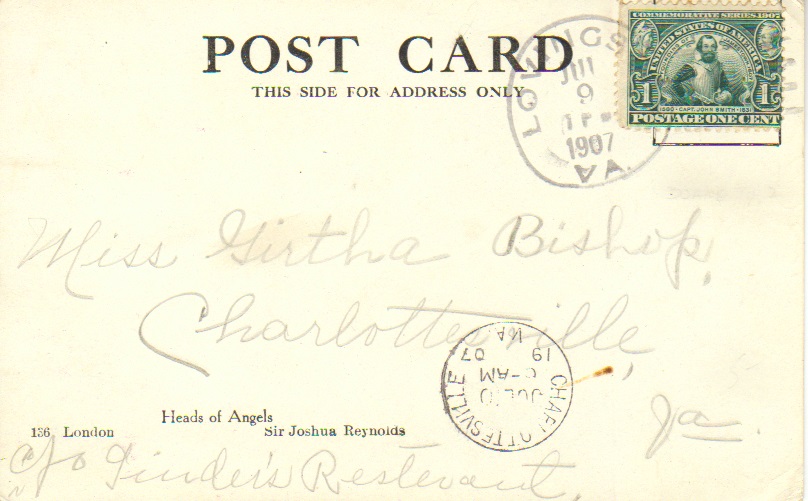 POST CARD
THIS SIDE FOR ADDRESS ONLY
COMMEMORATIVE SERIES 1907
UNITED STATES OF AMERICA
1580 · CAPT. JOHN SMITH · 1631
1 1
POSTAGE ONE CENT
JUL
9
1907
VA.
Miss Girtha Bishop,
Charlottesville,
Va.
CHARLOTTESVILLE
JUL 10
-AM
19 07
VA
Heads of Angels
136 London Sir Joshua Reynolds
c/o Restevant,